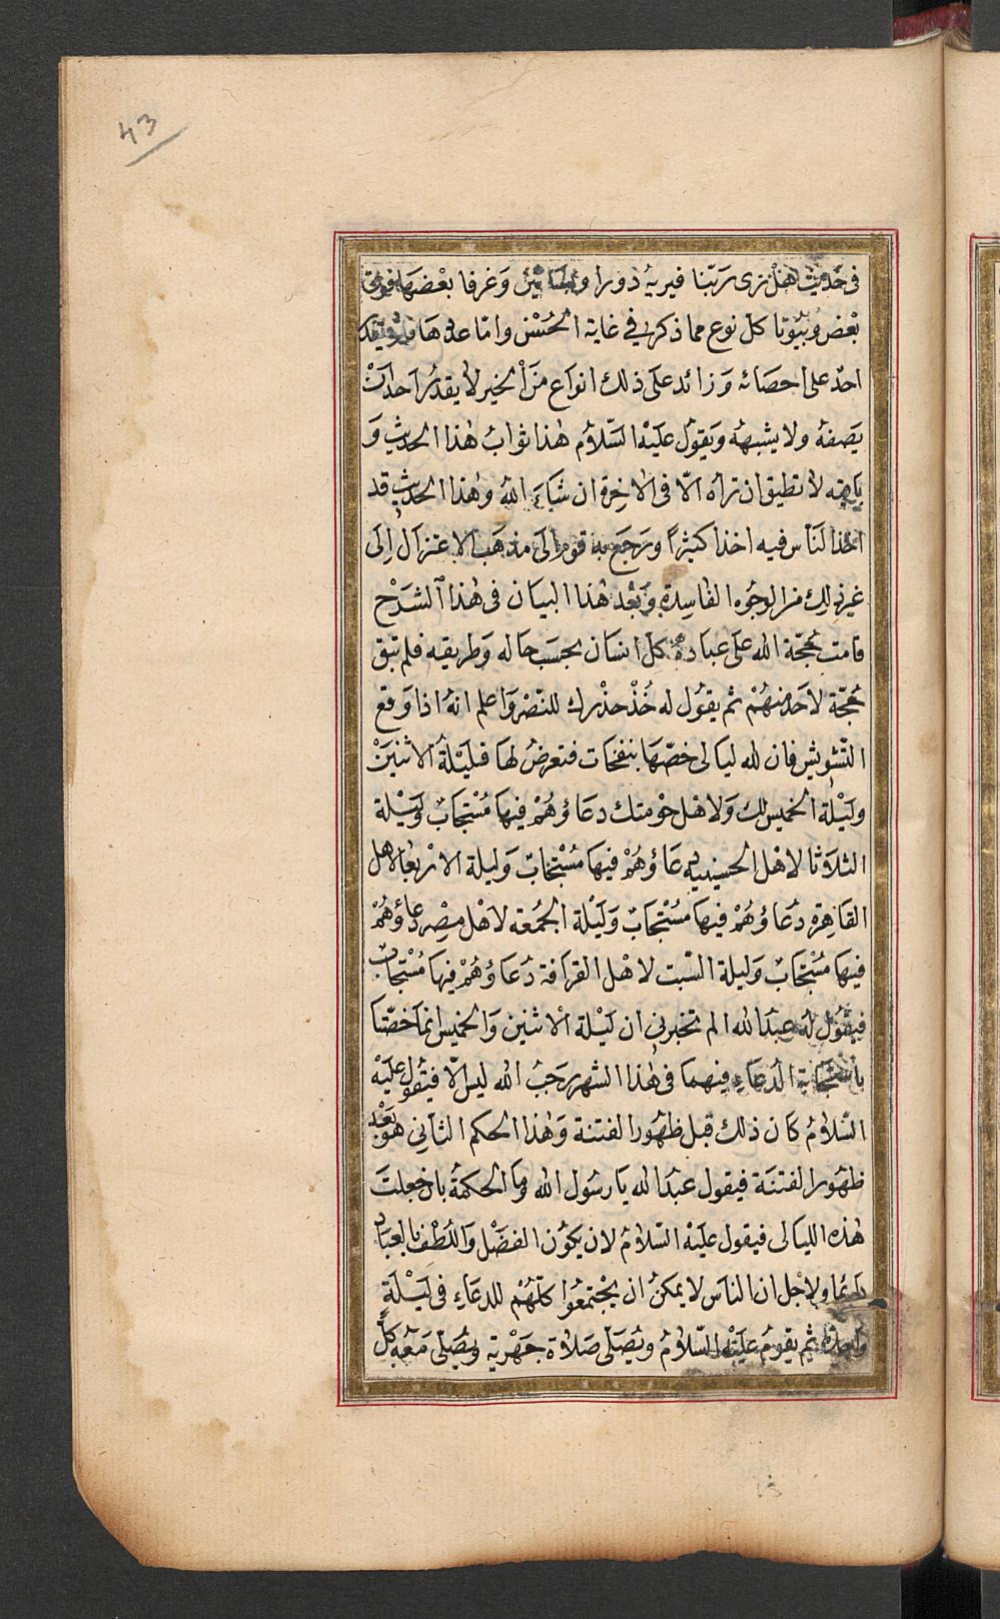 43
فى حديث هل نرى ربنا فيريه دورا وبساتين وَغرفا بعْضهَا فوق
بعْض وَبيُوتا كل نوع مما ذكر فى غاية الحُسْن وامّا عدهَا فلا يقد
احدٌ على احصائه وَزائد على ذلك انواع منَ الخير لا يقدرُ احد انْ
يَصفهُ ولا يشبههُ وَيقول عليْه السّلام هٰذا ثوابُ هٰذا الحديثِ وَ
لا تطيق ان تراه الّا فى الاخِرة ان شَاءَ اللهُ وهٰذا الحديثِ قد
اخذ النَاس فيه اخذا كثيرًا ورَجَع به قوم الَى مذهَب الاعتزال اِلَى
غير ذلِك من الوجُوه الفاسِدة وَبعْد هٰذا البيان فى هٰذا الشرْح
قامت حُجّة الله علَى عباده كل انسان بحسَب حَاله وَطريقه فلم تبق
حُجّة لاحَد منهُمْ ثم يقوُل له خُذْ حذْرك للنّصْر وَاعلم انهُ اذا وَقع
التّشويش فان لله ليَالى خصّهَا بنفحَات فتعرضُ لهَا فليْلةُ الاثنَيَنْ
وليْلة الخميس لك وَلاهْل حوْمتك دعَاؤهُمْ فيهَا مُسْتجَابٌ وَليْلة
الثلاَثا لاهْل الحسينيه دعَاؤهُمْ فيهَا مُسْتجابٌ وَليلة الارْبعَا لاهل
القَاهِرة دُعَاؤهُمْ فيهَا مسُتْجَابٌ وَليْلة الجُمُعة لاهْل مِصْر دعاؤهُمْ
فيهَا مُسْتجَابٌ وَليلة السّبت لاهْل القرافة دُعَاؤهُمْ فيهَا مُسْتجابٌ
فيقوُل له عبْدَالله الم تخبرنى ان ليْلة الاثنين وَالخميس انما خصّتَا
باستجَابة الدعَاءِ فيهما فى هٰذا الشهر رجَبُ الله ليسَ الّا فيَقول عليْه
السّلامُ كان ذلك قبل ظهُور الفتنة وَهٰذا الحكم الثانِى هوَ بعْد
ظهُور الفتنَة فيقول عبْدَالله يَا رسُول الله وَمَا الحكمَةُ بان جعلتَ
هٰذه الليَالى فيقول عليْه السّلامُ لان يكوُن الفضْل وَاللطْف بالعبَاد
دَائمًا ولاجْل ان النَاس لا يمكنُ ان يجْتمعُوا كلّهُمْ للدعَاءِ فى ليْلَةٍ
وَاحدة ثم يقومُ عليْه السّلامُ ويُصَلّى صَلاة جهْرية ويُصَلّى مَعَه كلّ